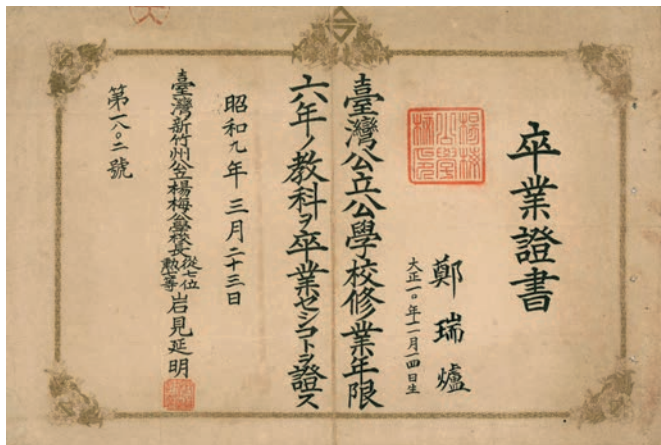 卒業證書
鄭瑞爐
大正一〇年十一月一四日生
臺灣公立公學校修業年限
六年ノ教科ヲ卒業セシコトヲ證ス
昭和九年三月二十三日
臺灣新竹州公立楊梅公學校長從七位勲八等岩見延明
第一八〇二號
楊梅公學校印